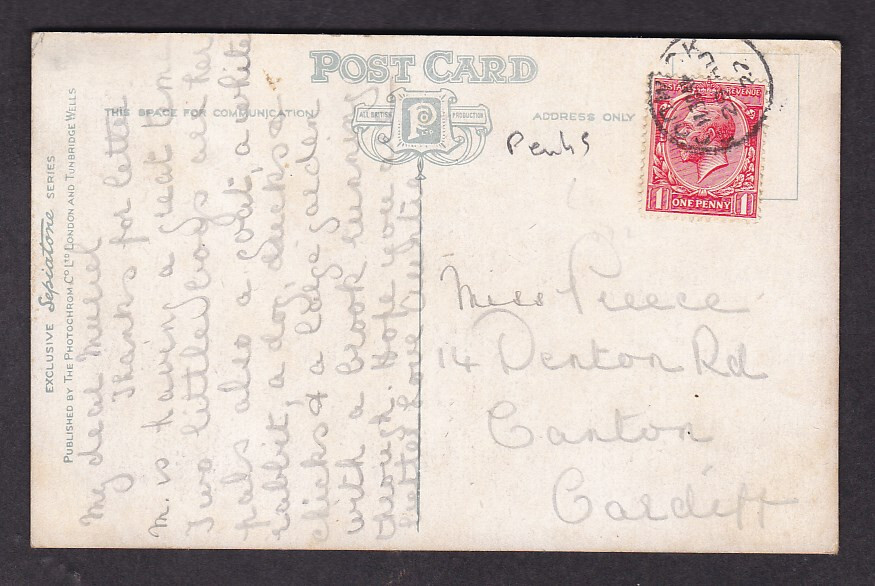 POST CARD
THIS SPACE FOR COMMUNICATION
ALL BRITISH PRODUCTION
ADDRESS ONLY
EXCLUSIVE Sepiatone SERIES
PUBLISHED BY THE PHOTOCHROM CO LTD LONDON AND TUNBRIDGE WELLS
My dear Muriel
Thanks for letter
M. is having a great time
Two little boys are her
pals also a goat, a white
rabbit, a dog, ducks
chicks & a large garden
with a brook running
through. Hope you are
better Love
Penhs
POSTAGE REVENUE
ONE PENNY
1 1
Miss Preece
14 Denton Rd
Canton
Cardiff